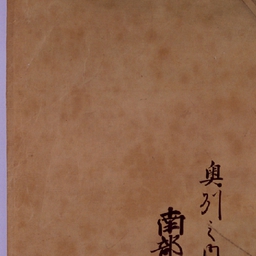 奥州之内
南部